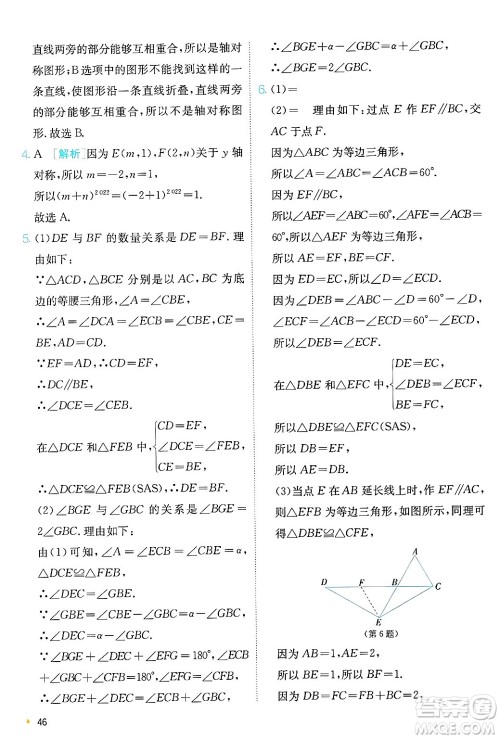 直线两旁的部分能够互相重合，所以是轴对
称图形；B选项中的图形不能找到这样的一
条直线，使图形沿一条直线折叠，直线两旁的
部分能够互相重合，所以不是轴对称图
形.故选B.
4. A [解析]因为E(m,1),F(2,n)关于y轴
对称,所以m=-2,n=1,
所以(m+n)²⁰²²=(-2+1)²⁰²²=1.
故选A.
5. (1)DE与BF的数量关系是DE=BF.理
由如下：
∵△ACD,△BCE分别是以AC,BC为底
边的等腰三角形,∴∠A=∠CBE,
∴∠A=∠DCA=∠CBE=∠BCE,BE=
EC,AD=CD.
∵EF=AD,∴CD=EF.
∵∠A=∠CBE,∴AD∥BE,CD∥BE,
∴∠DCE=∠CEB.
在△DCE和△FEB中,{CD=EF,
∠DCE=∠FEB,
CE=EB,
∴△DCE≌△FEB(SAS),∴DE=BF.
(2)∠BGE与∠GBC的关系是∠BGE=
2∠GBC.理由如下：
由(1)可知,∠A=∠BCE=∠CBE=α,
△DCE≌△FEB(SAS),
∴∠CDE=∠EFG.
∵∠GBE=∠GBE,
∴∠BGE=∠DEB.
∵∠BGF+∠BGE=180°,
∠BGF+∠DEC+∠EFG=180°,
∴∠BGE=∠DEC+∠CDE=∠ACD+
∠A=2α.
∵∠BGE+∠GBC=∠GBC+∠GBC+
∠BCE,
∴∠BGE=α+∠GBC=2α,∴∠GBC=
α,∴∠BGE=2∠GBC.
6. (1)=
(2)= 理由如下：过点E作EF∥BC,
交AC于点F.
因为△ABC为等边三角形,
所以∠A=∠ACB=∠ABC=60°.
所以∠AEF=∠ABC=60°,∠AFE=
∠ACB=60°.
所以△AEF为等边三角形.
所以AE=EF,BE=CF.
因为ED=EC,所以∠D=∠ECD.
因为∠DEB=60°-∠D,∠ECF=60°-
∠ECD,所以∠DEB=∠ECF.
在△DBE和△EFC中,{DE=CE,
∠DEB=∠ECF,
BE=FC,
所以△DBE≌△EFC(SAS).
所以DB=EF.
所以AE=DB.
(3)当点E在AB延长线上时,作EF∥AC,
则△EFB为等边三角形,如图所示,同理可
得△DBE≌△CFE.
A
D
F
B
C
E
(第6题)
因为AB=1,AE=2,
所以BE=1.
因为DB=FC=FB+BC=2,
所以BC=1,所以BF=1.
46
答案圈